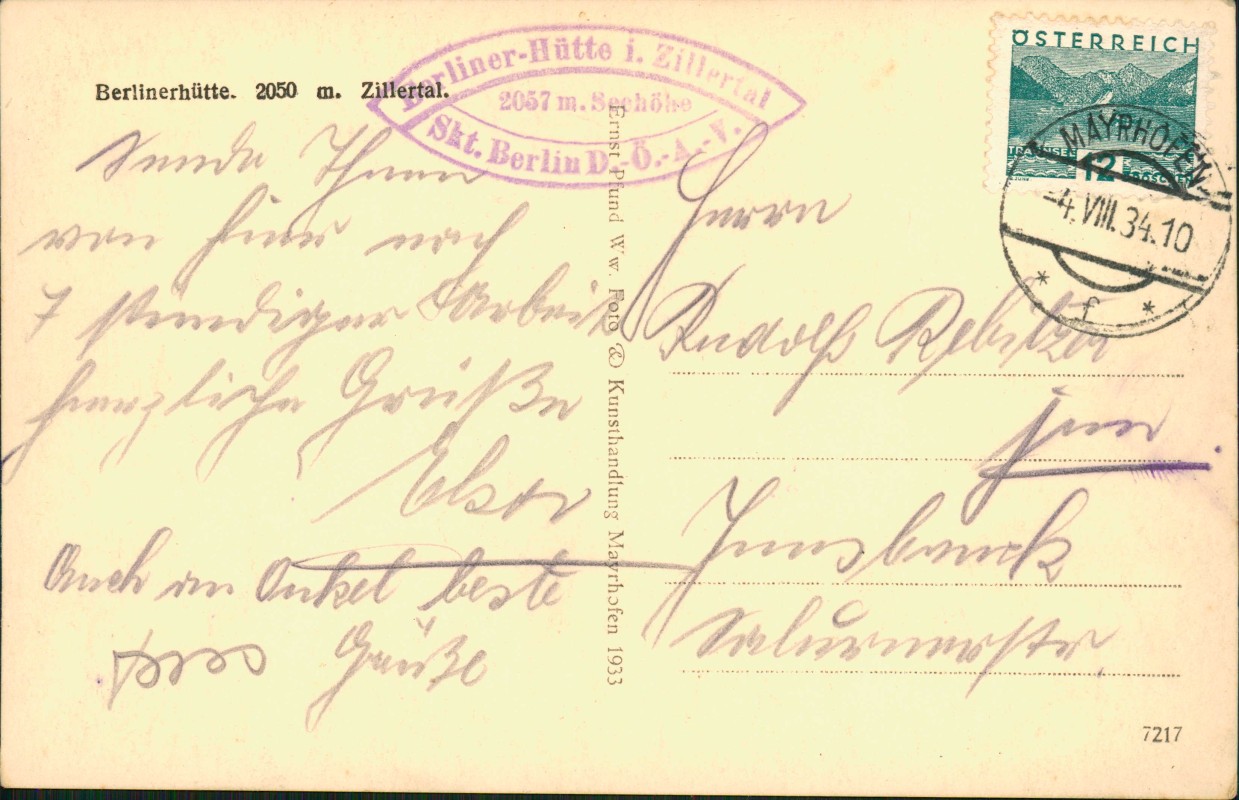 Berlinerhütte. 2050 m. Zillertal.
Berliner-Hütte i. Zillertal
2057 m. Seehöhe
Skt. Berlin D.-Ö.-A.-V.
ÖSTERREICH
TRAUNSEE 12 GROSCHEN
MAYRHOFEN
-4.VIII.34.10
* f *
Sende Ihnen
von hier nach
7 stündiger Arbeit
herzliche Grüße
Auch an Onkel beste
Grüße
Ernst Pfund Ww. Foto & Kunsthandlung Mayrhofen 1933
Herrn
Rudolf Rebitzer
jun.
Innsbruck
Salurnerstr.
7217